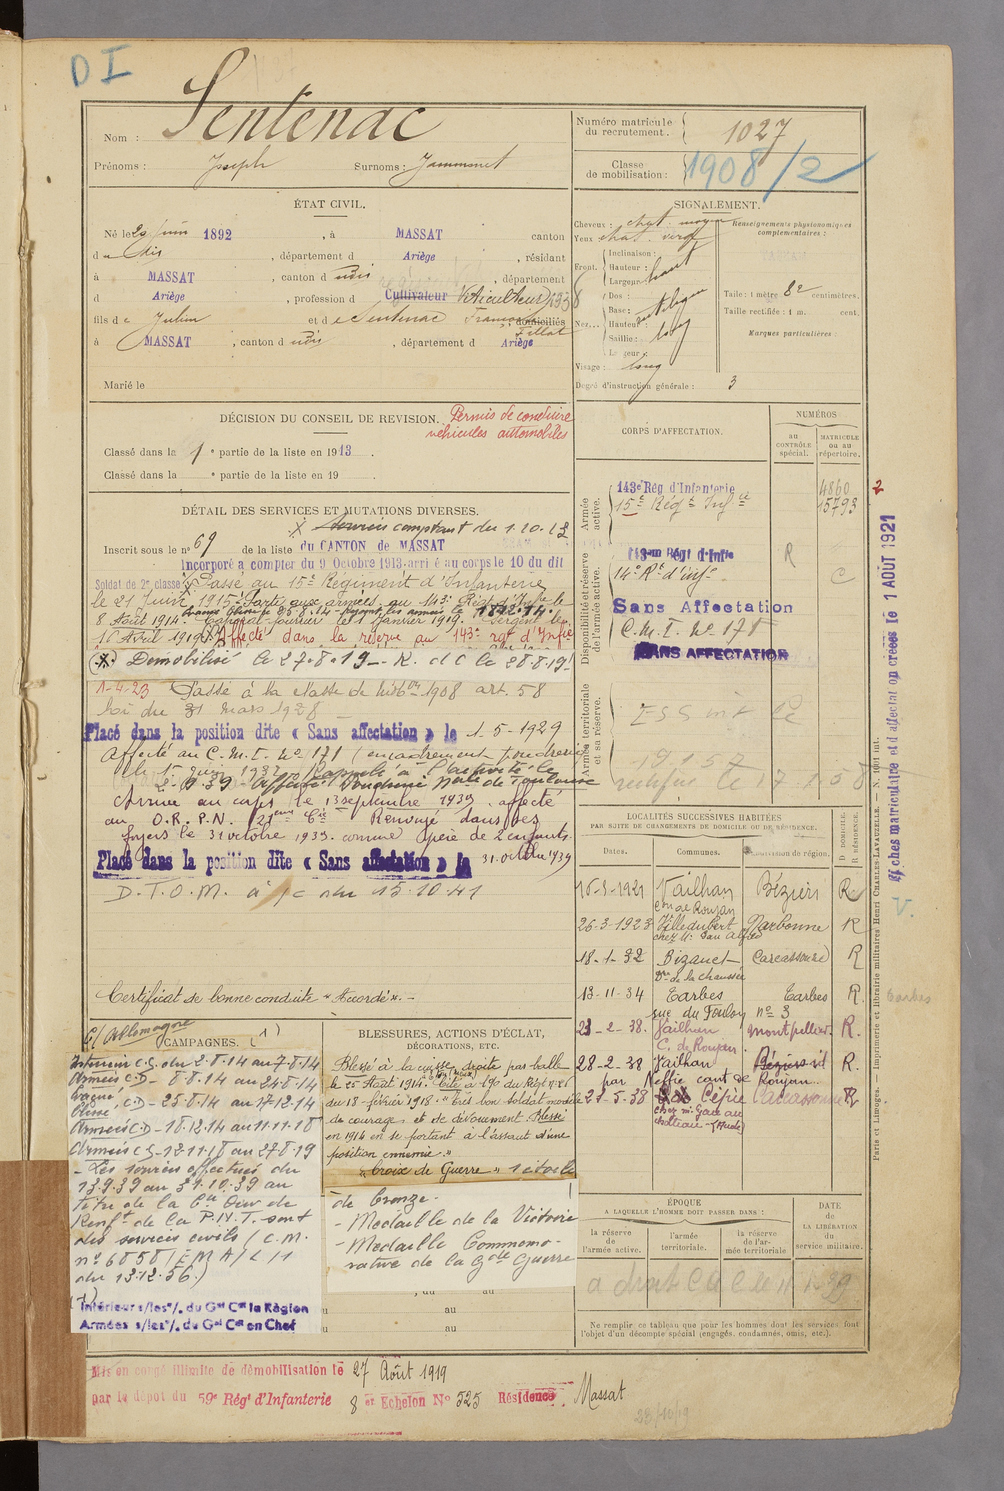 D I
Nom : Sentenac
Prénoms : Joseph Surnoms :
Numéro matricule du recrutement. 1027
Classe de mobilisation : 1908/2
ÉTAT CIVIL.
Né le 20 juin 1892, à MASSAT canton
du dis, département d Ariège, résidant
à MASSAT, canton d udis, département
d Ariège, profession d Cultivateur Viticulteur
fils de Julien et de Sentenac domiciliés
à MASSAT, canton d udis, département d Ariège
Marié le
SIGNALEMENT.
Cheveux : chat. moyen
Yeux chat. verd
Front. Inclinaison :
Hauteur : haut
Largeur
Nez... Dos : rectiligne
Base :
Hauteur :
Saillie : long
Largeur :
Visage : long
Degré d'instruction générale : 3
Renseignements physionomiques complémentaires :
Taille : 1 mètre centimètres.
Taille rectifiée : 1 m. cent.
Marques particulières :
DÉCISION DU CONSEIL DE REVISION. Permis de conduire
véhicules automobiles
Classé dans la 1e partie de la liste en 1913.
Classé dans la e partie de la liste en 19
DÉTAIL DES SERVICES ET MUTATIONS DIVERSES.
X Services comptant du 1.10.13
Inscrit sous le n° 69 de la liste du CANTON de MASSAT
Incorporé à compter du 9 Octobre 1913 arrivé au corps le 10 du dit
Soldat de 2e classe Passé au 15e Régiment d'Infanterie
le 21 Juin 1915. Parti aux armées au 143e Régt d'Infie le
8 Août 1914. Caporal-fourrier le 1 Janvier 1919. Sergent le
16 Avril 1919. Affecté dans la réserve au 143e rgt d'Infie
(X) Démobilisé le 27.8.19 - R. d C le 28.8.19
1-4-23 Passé à la classe de mobon 1908 art. 58
loi du 31 mars 1928
Placé dans la position dite « Sans affectation » le 1-5-1929
Affecté au C.M.I. No 171 (encadrement poudrerie
le 15 juin 1932 Rappelé à l'activité le
2-9-39 Affecté Poudrerie Nale de Toulouse
Arrivé au corps le 13 septembre 1939 affecté
au D.R.P.N. (21eme Cie Renvoyé dans ses
foyers le 31 octobre 1939 comme père de 2 enfants.
Placé dans la position dite « Sans affectation » le 31 octobre 1939
D.T.O.M. à/c du 15.10.41
Certificat de bonne conduite « Accordé ». -
CORPS D'AFFECTATION.
NUMÉROS
au CONTRÔLE spécial.
MATRICULE ou au répertoire.
Armée active.
143e Rég d'Infanterie 4860
15e Régt Infie 15793
Disponibilité et réserve de l'armée active.
143em Régt d'Infie R
14e Rt d'infie C
Sans Affectation
C.M.I. No 171
SANS AFFECTATION
Armée territoriale et sa réserve.
rectifié le 17.1.58
2
Fiches matriculaire et d'affectation créées le 1 AOÛT 1921
V.
LOCALITÉS SUCCESSIVES HABITÉES
PAR SUITE DE CHANGEMENTS DE DOMICILE OU DE RÉSIDENCE.
Dates. Communes. Subdivision de région. D. DOMICILE. R. RÉSIDENCE.
16-3-1921 Vailhan Béziers R
con de Roujan
26-3-1923 Villedubert Narbonne R
18-1-32 Bizanet Carcassonne R
13-11-34 Tarbes Tarbes R.
rue du Foulon n° 3
23-2-38. Vailhan Montpellier. R.
C. de Roujan.
28-2-38 Vailhan Béziers R.
cant de Roujan.
27-5-38 Carcassonne R
château - (Aude)
Tarbes
Paris et Limoges. — Imprimerie et librairie militaires Henri CHARLES-LAVAUZELLE. —
C/ Allemagne
CAMPAGNES. (1)
Intérieur C.S. du 2.8.14 au 7.8.14
Armées C.D - 8.8.14 au 24.8.14
Blessé C.D - 25.8.14 au 17.12.14
Armées C.D - 18.12.14 au 11.11.18
Armées CS - 12.11.18 au 27.8.19
- Les services effectués du
13.9.39 au 31.10.39 au
titre de la Cie Div de
Renft de la P.N.T. sont
des services civils (C.M.
n° 6858/E M A/L 11
du 13.12.56.)
(1)
Intérieur s/les %. du Gal Ct la Région
Armées s/les %. du Gal Ct en Chef
BLESSURES, ACTIONS D'ÉCLAT,
DÉCORATIONS, ETC.
Blessé à la cuisse droite par balle
le 25 Août 1914. Cité à l'Do du Régt
du 18 février 1918. « Très bon soldat modèle
de courage et de dévouement. Blessé
en 1914 en se portant à l'assaut d'une
position ennemie. »
« Croix de Guerre » 1 étoile
de bronze.
- Médaille de la Victoire
- Médaille Commémo-
rative de la Gde Guerre
au
au
au
ÉPOQUE
A LAQUELLE L'HOMME DOIT PASSER DANS :
la réserve de l'armée active.
l'armée territoriale.
la réserve de l'armée territoriale
DATE de LA LIBÉRATION du service militaire.
Ne remplir ce tableau que pour les hommes dont les services font
l'objet d'un décompte spécial (engagés, condamnés, omis, etc.).
Mis en congé illimité de démobilisation le 27 Août 1919
par le dépôt du 59e Régt d'Infanterie 8 er Echelon No 525 Résidence Massat
28/10/19